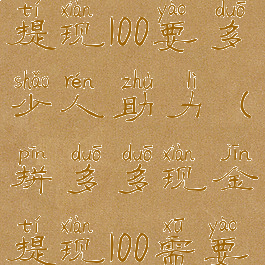 tí xiàn yào duō
提现100要多
shǎo rén zhù lì
少人助力（
pīn duō duō xiàn jīn
拼多多现金
tí xiàn xū yào
提现100需要